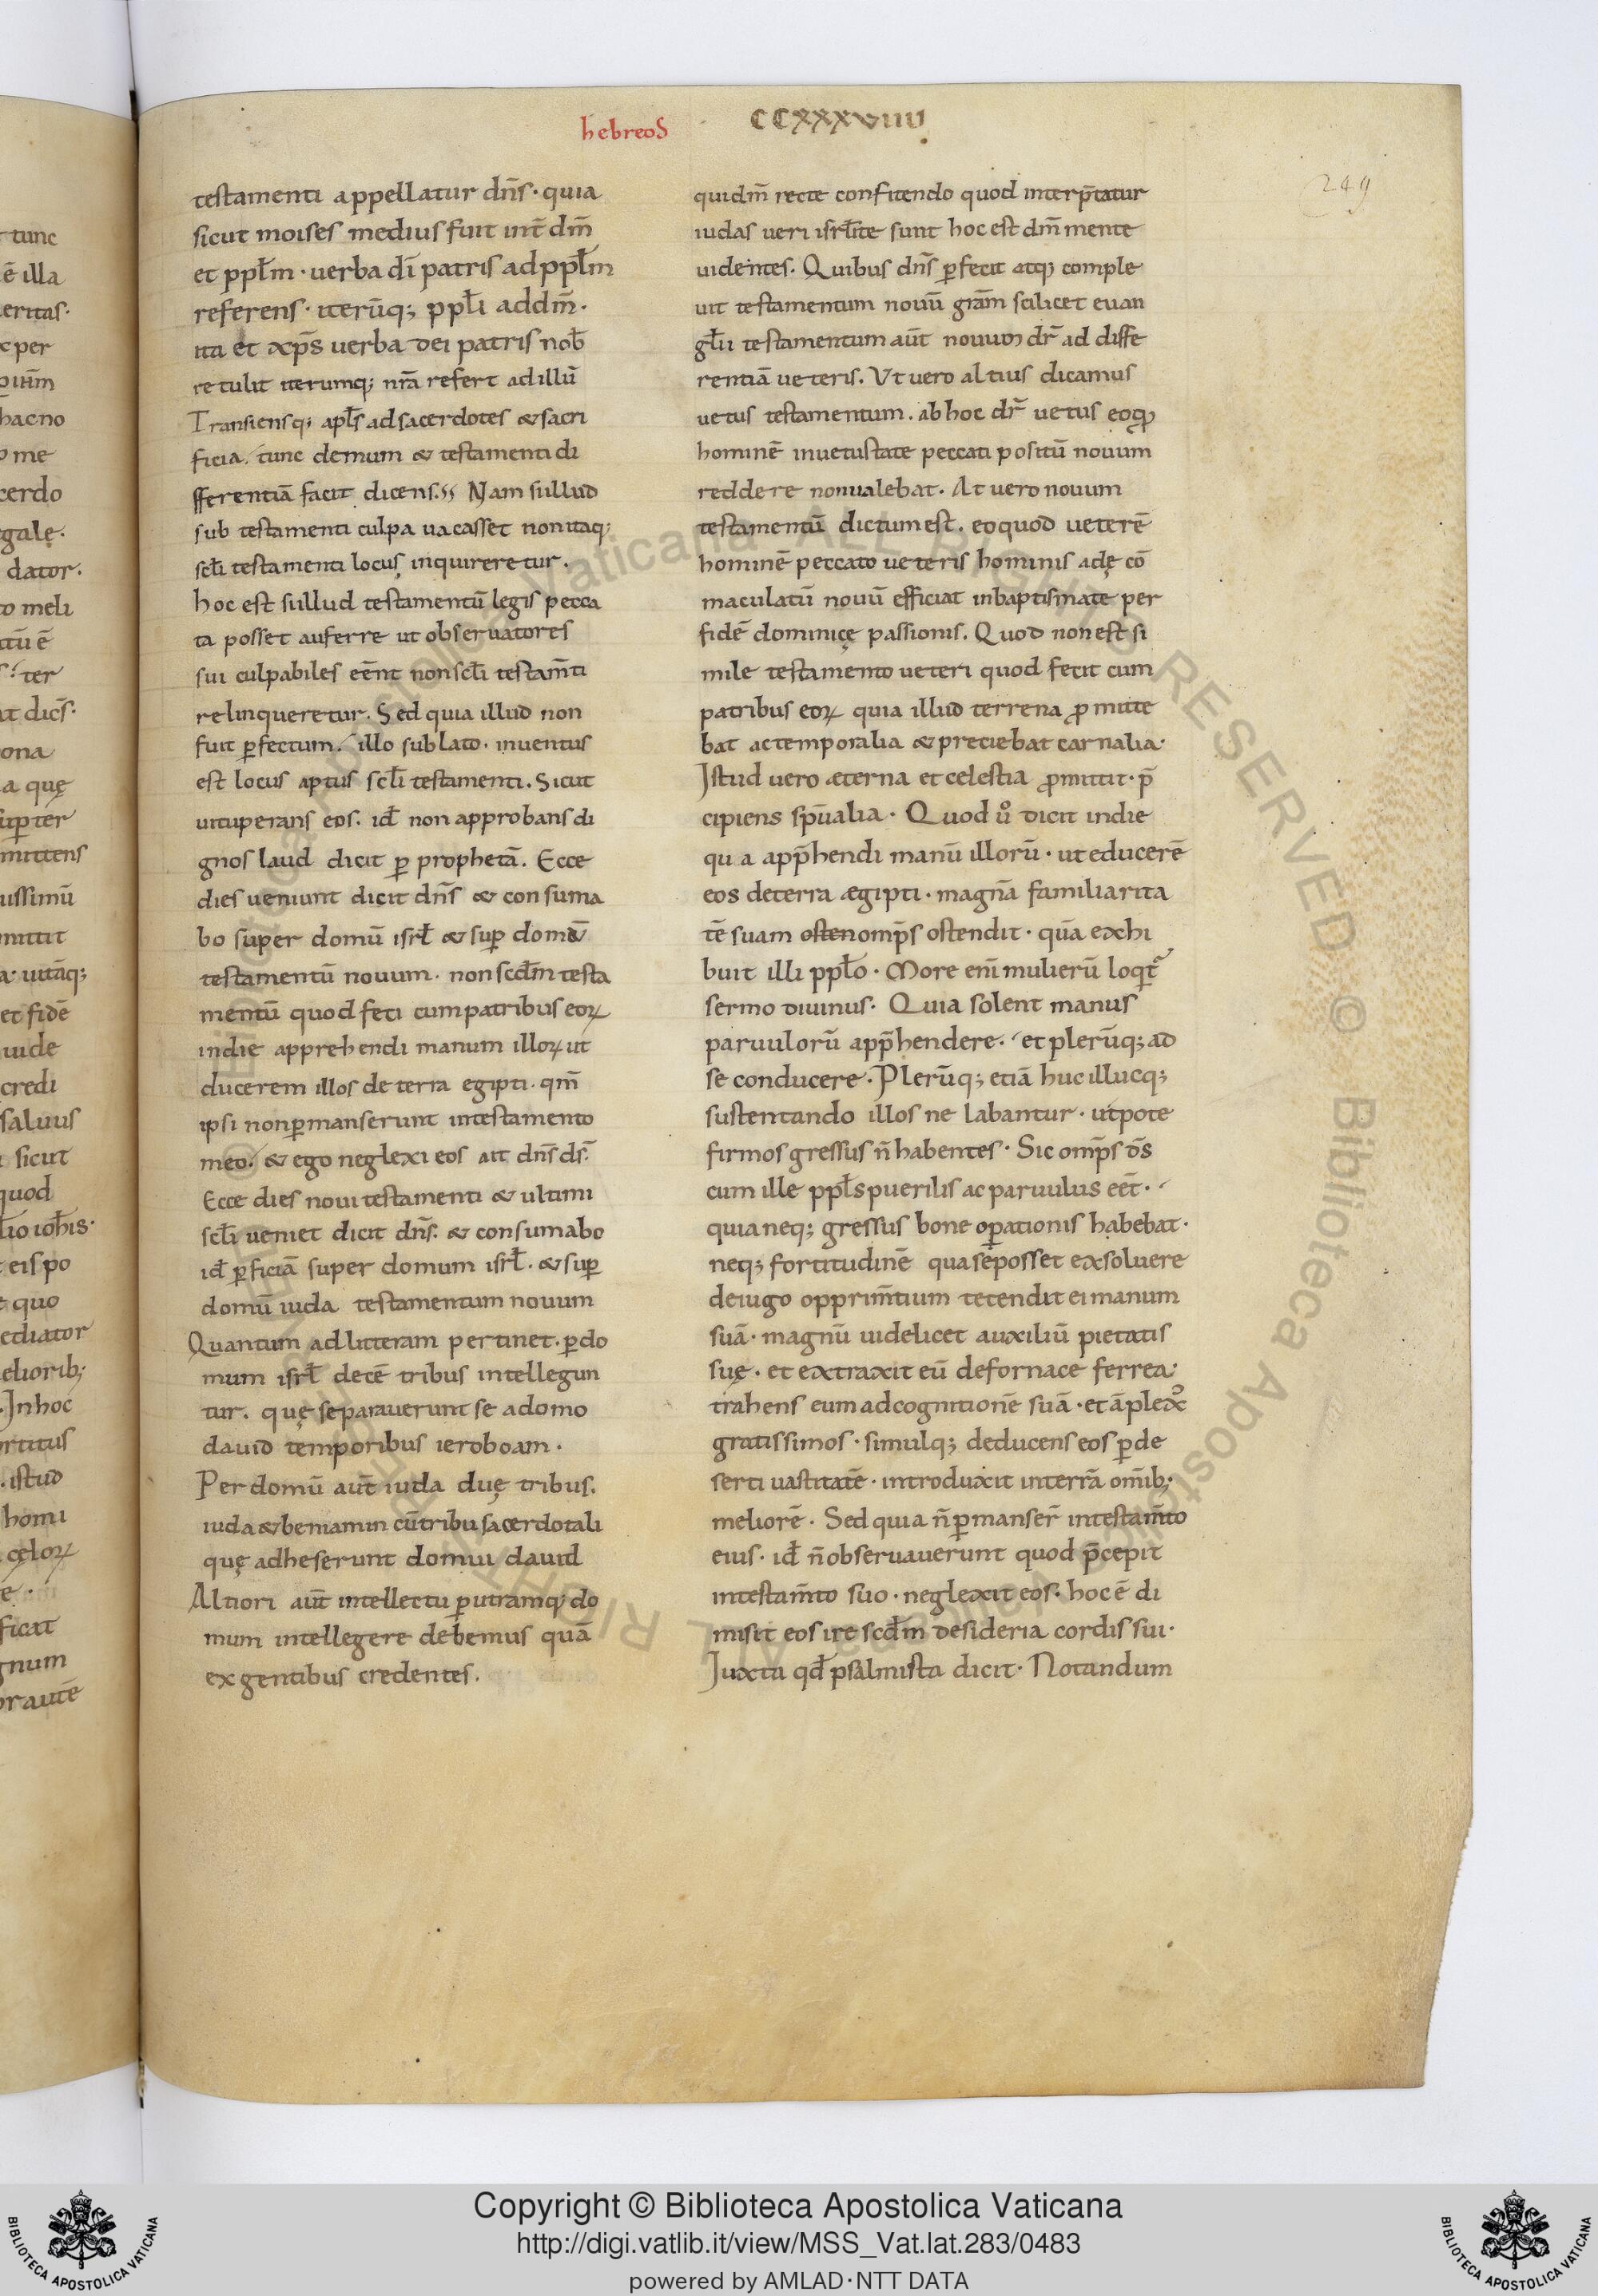 hebreos
CCXXXVIIII
249
testamenti appellatur dn̄s · quia
sicut moises medius fuit int̄ dm̄
et ppl̄m · uerba dī patris ad ppl̄m
referens · iterūq; ppl̄i ad dm̄ ·
ita et xp̄s uerba dei patris nob̄
retulit iterumq; nr̄a refert ad illū
Transiensq; apl̄s ad sacerdotes & sacri
ficia. tunc demum & testamenti di
fferentiā facit dicens. Nam si illud
sub testamenti culpa uacasset non itaq;
scd̄i testamenti locus inquireretur.
hoc est si illud testamentū legis pecca
ta posset auferre ut obseruatores
sui culpabiles eēnt non scd̄i testam̄ti
relinqueretur. Sed quia illud non
fuit ꝑfectum. illo sublato. inuentus
est locus aptus scd̄i testamenti. Sicut
uituperans eos. id̄ non approbans di
gnos laud dicit ꝑ prophetā. Ecce
dies ueniunt dicit dn̄s & consuma
bo super domū isrl̄ & suꝑ domū
testamentū nouum. non scd̄m testa
mentū quod feci cum patribus eoꝝ
in die apprehendi manum illoꝝ ut
ducerem illos de terra egipti. qm̄
ipsi non ꝑmanserunt in testamento
meo. & ego neglexi eos ait dn̄s ds̄.
Ecce dies noui testamenti & ultimi
scl̄i ueniet dicit dn̄s. & consumabo
id̄ ꝑficiā super domum isrl̄. & suꝑ
domū iuda testamentum nouum
Quantum ad litteram pertinet. ꝑ do
mum isrl̄ decē tribus intellegun
tur. quę separauerunt se a domo
dauid temporibus ieroboam.
Per domū aūt iuda duę tribus.
iuda & beniamin cū tribu sacerdotali
quę adheserunt domui dauid
Altiori aūt intellectu ꝑ utramq; do
mum intellegere debemus quā
ex gentibus credentes.
quidm̄ recte confitendo quod interp̄tatur
iudas ueri isrl̄ite sunt hoc est dm̄ mente
uidentes. Quibus dn̄s ꝑfecit atq; comple
uit testamentum nouū gr̄am scilicet euan
gl̄ii testamentum aūt nouum dr̄ ad diffe
rentiā ueteris. Ut uero altius dicamus
uetus testamentum. ab hoc dr̄ uetus eo qđ
hominē in uetustate peccati positū nouum
reddere non ualebat. At uero nouum
testamentū dictum est. eo quod ueterē
hominē peccato ueteris hominis adę cō
maculatū nouū efficiat in baptismate per
fidē dominicę passionis. Quod non est si
mile testamento ueteri quod fecit cum
patribus eoꝝ quia illud terrena ꝓmitte
bat ac temporalia & preciebat carnalia.
Istud uero æterna et celestia ꝓmittit · p̄
cipiens sp̄ualia · Quod ů dicit in die
qu a app̄hendi manū illorū · ut educerē
eos de terra ægipti · magnā familiarita
tē suam ostenomp̄s ostendit · quā exhi
buit illi ppl̄o · More enī mulierū loq̄t̄
sermo diuinus · Quia solent manus
paruulorū app̄hendere. et plerūq; ad
se conducere · Plerūq; etiā huc illucq;
sustentando illos ne labantur · utpote
firmos gressus n̄ habentes · Sic omp̄s ds̄
cum ille ppl̄s puerilis ac paruulus eēt ·
quia neq; gressus bone oꝑationis habebat ·
neq; fortitudinē qua se posset exsoluere
de iugo opprim̄tium tetendit ei manum
suā · magnū uidelicet auxiliū pietatis
suę · et extraxit eū de fornace ferrea ·
trahens eum ad cognitionē suā · et āplex͛
gratissimos · simulq; deducens eos ꝑ de
serti uastitatē · introduxit in terrā om̄ib;
meliorē · Sed quia n̄ ꝑmanser̄ in testam̄to
eius · id̄ n̄ obseruauerunt quod p̄cepit
in testam̄to suo · neglexit eos · hoc ē di
misit eos ire scd̄m desideria cordis sui ·
Iuxta qd̄ psalmista dicit · Notandum
Copyright © Biblioteca Apostolica Vaticana
http://digi.vatlib.it/view/MSS_Vat.lat.283/0483
powered by AMLAD·NTT DATA